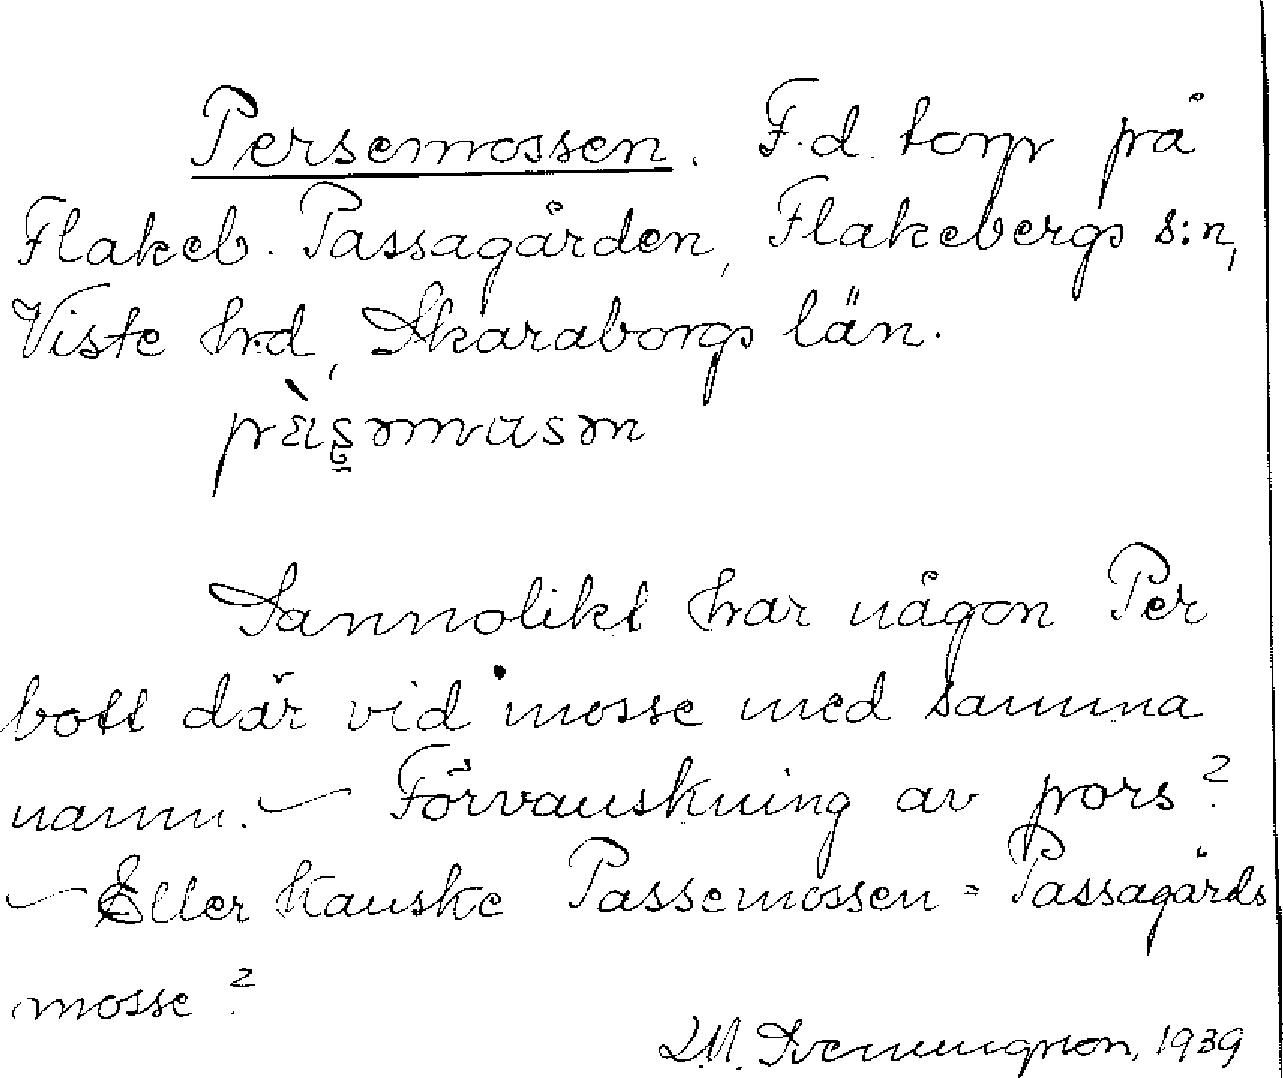 Persemossen. F.d. torp på
Flakeb. Passagården, Flakebergs s:n,
Viste hrd, Skaraborgs län.
Sannolikt har någon Per
bott där vid mosse med samma
namn. – Förvanskning av pors?
– Eller kanske Passemossen = Passagårds
mosse?
1939